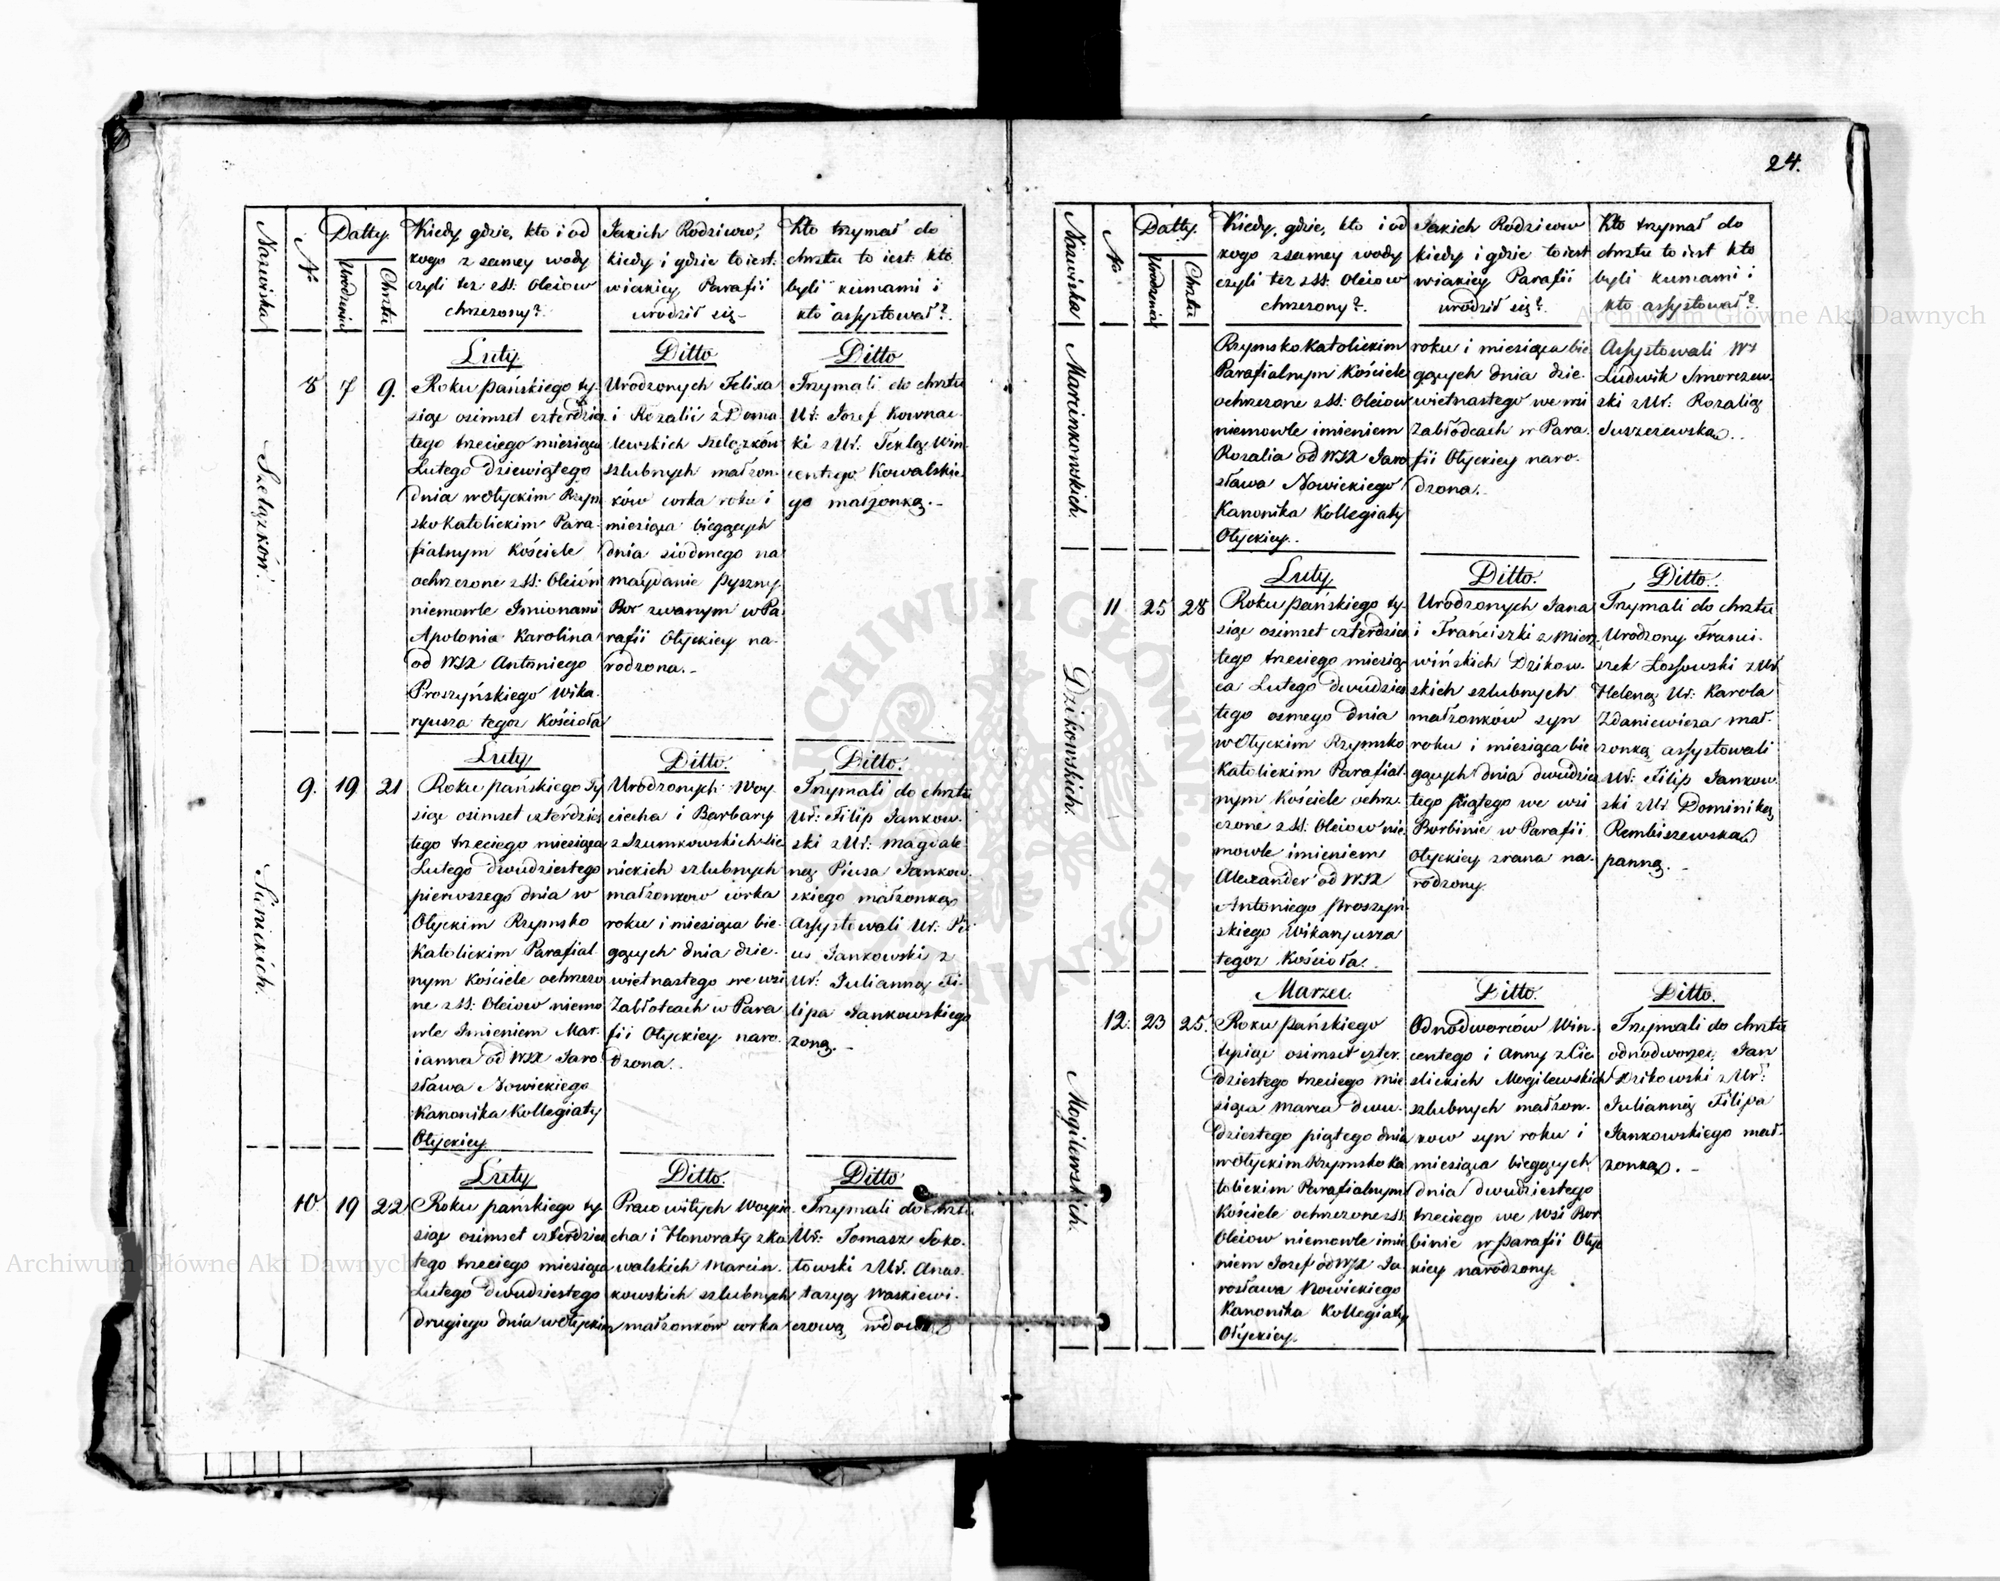 24.
Nazwiska
N.
Datty.
Urodzenia
Chrztu
Kiedy, gdzie, kto i od
kogo z samey wody
czyli też z SS: Oleiow
chrzczony?
Jakich Rodziców,
kiedy i gdzie to iest:
w iakiey Parafii
urodził się
Kto trzymał do
chrztu to iest: kto
byli kumami i
kto assystował?
Szelązków.
8 7 9.
Luty
Roku pańskiego ty-
siąc osimset czterdzies
tego trzeciego miesiąca
Lutego dziewiątego
dnia w Ołyckim Rzym
sko Katolickim Para-
fialnym Kościele
ochrzczone z SS: Oleiów
niemowle Imionami
Apolonia Karolina
od WJX Antoniego
Proszyńskiego Wika-
ryusza tegoż Kościoła
Ditto
Urodzonych Felixa
i Rozalii z Doma-
lewskich Szelązków
szlubnych małżon-
ków córka roku i
miesiąca bieżących
dnia siódmego na
maydanie pyszny
Bor zwanym w Pa
rafii Ołyckiey na-
rodzona.-
Ditto
Trzymali do chrztu
Ur: Jozef Kownac-
ki z Ur: Teklą Win-
centego Kowalskie-
go małżonką.-
9. 19 21
Luty
Roku pańskiego Ty
siąc osimset czterdzies
tego trzeciego miesiąca
Lutego dwudziestego
pierwszego dnia w
Ołyckim Rzymsko
Katolickim Parafial-
nym Kościele ochrzczo
ne z SS: Oleiow niemo
wle Imieniem Mar-
ianna od WJX Jaro
sława Nowickiego
Kanonika Kollegiaty
Ołyckiey
Ditto.
Urodzonych Woy-
ciecha i Barbary
z Szumkowskich
nickich szlubnych
małżonkow córka
roku i miesiąca bie-
żących dnia dzie-
wietnastego we wsi
Zabłotcach w Para
fii Ołyckiey naro-
dzona.-
Ditto.
Trzymali do chrztu
Ur: Filip Jankow-
ski z Ur: Magdale-
ną Piusa Jankow-
skiego małżonką
Assystowali Ur: Pi
us Jankowski z
Ur: Julianną Fi-
lipa Jankowskiego
żoną.-
10. 19 22
Luty
Roku pańskiego ty
siąc osimset czterdzies
tego trzeciego miesiąca
Lutego dwudziestego
drugiego dnia w Ołyckim
Ditto.
Pracowitych Woycie-
cha i Honoraty z Ko
walskich Marcin-
kowskich szlubnych
małżonków córka
Ditto
Trzymali do chrztu
Ur: Tomasz Soko-
łowski z Ur: Anas-
tazyą Waskiewi-
czową wdową
Nazwiska
N.
Datty.
Urodzenia
Chrztu
Kiedy, gdzie, kto i od
kogo z samey wody
czyli też z SS: Oleiow
chrzczony?
Jakich Rodzicow
kiedy i gdzie to iest
w iakiey Parafii
urodził się?
Kto trzymał do
chrztu to iest kto
byli kumami i
kto assystował?
Marcinkowskich.
Rzymsko Katolickim
Parafialnym Kościele
ochrzczone z SS: Oleiow
niemowle imieniem
Rozalia od WJX Jaro
sława Nowickiego
Kanonika Kollegiaty
Ołyckiey.
roku i miesiąca bie
żących dnia dzie-
wietnastego we wsi
Zabłodcach w Para-
fii Ołyckiey naro-
dzona.-
Assystowali Ur
Ludwik Smorczew-
ski z Ur: Rozalią
Juszczewską.
Dzikowskich.
11 25 28
Luty
Roku pańskiego ty-
siąc osimset czterdzies
tego trzeciego miesią
ca Lutego dwudzies
tego osmego dnia
w Ołyckim Rzymsko
Katolickim Parafial-
nym Kościele ochrz-
czone z SS: Oleiow nie
mowle imieniem
Alexander od WJX
Antoniego Proszyń
skiego Wikaryusza
tegoż Kościoła.
Ditto.
Urodzonych Jana
i Franciszki z Mier
wińskich Dzikow-
skich szlubnych
małżonków syn
roku i miesiąca bie
żących dnia dwudzies
tego piątego we wsi
Borbinie w Parafii
Ołyckiey zrana na-
rodzony.
Ditto.
Trzymali do chrztu
Urodzony Franci-
szek Łossowski z Ur
Heleną Ur. Karola
Zdaniewicza mał-
żonką assystowali
Ur: Filip Jankow-
ski z Ur Dominiką
Rembiszewską
panną.-
Mogilewskich.
12. 23 25.
Marzec.
Roku pańskiego
tysiąc osimset czter-
dziestego trzeciego mie
siąca marca dwu-
dziestego piątego dnia
w Ołyckim Rzymsko Ka
tolickim Parafialnym
Kościele ochrzczone z SS:
Oleiow niemowle imie
niem Jozef od WJX Ja
rosława Nowickiego
Kanonika Kollegiaty
Ołyckiey.
Ditto.
Odnodworców Win-
centego i Anny z Cie
slickich Mogilewskich
szlubnych małżon-
kow syn roku i
miesiąca bieżących
dnia dwudziestego
trzeciego we wsi Bor
binie w parafii Ołyc
kiey narodzony.
Ditto.
Trzymali do chrztu
odnodworzec Jan
Dzikowski z Ur:
Julianną Filipa
Jankowskiego mał-
żonką.-
Archiwum Główne Akt Dawnych
Archiwum Główne Akt Dawnych
ARCHIWUM GŁÓWNE AKT DAWNYCH